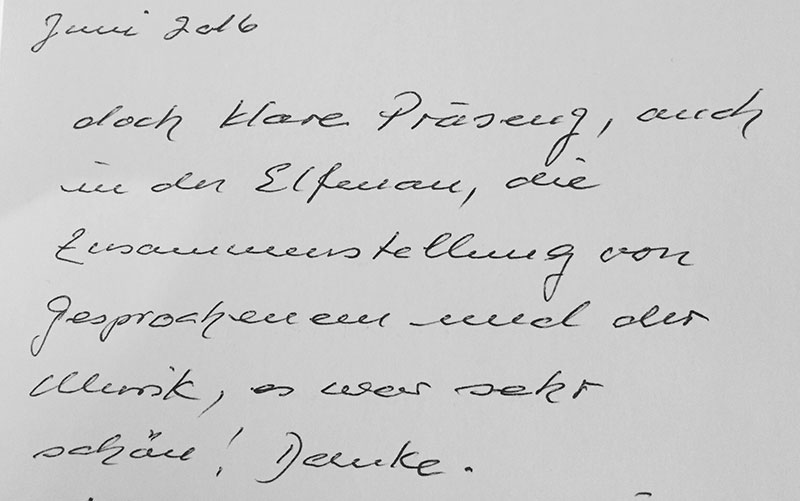 Juni 2016
doch klare Präsenz, auch
in der Elfenau, die
Zusammenstellung von
Gesprochenem und der
Musik, es war sehr
schön! Danke.